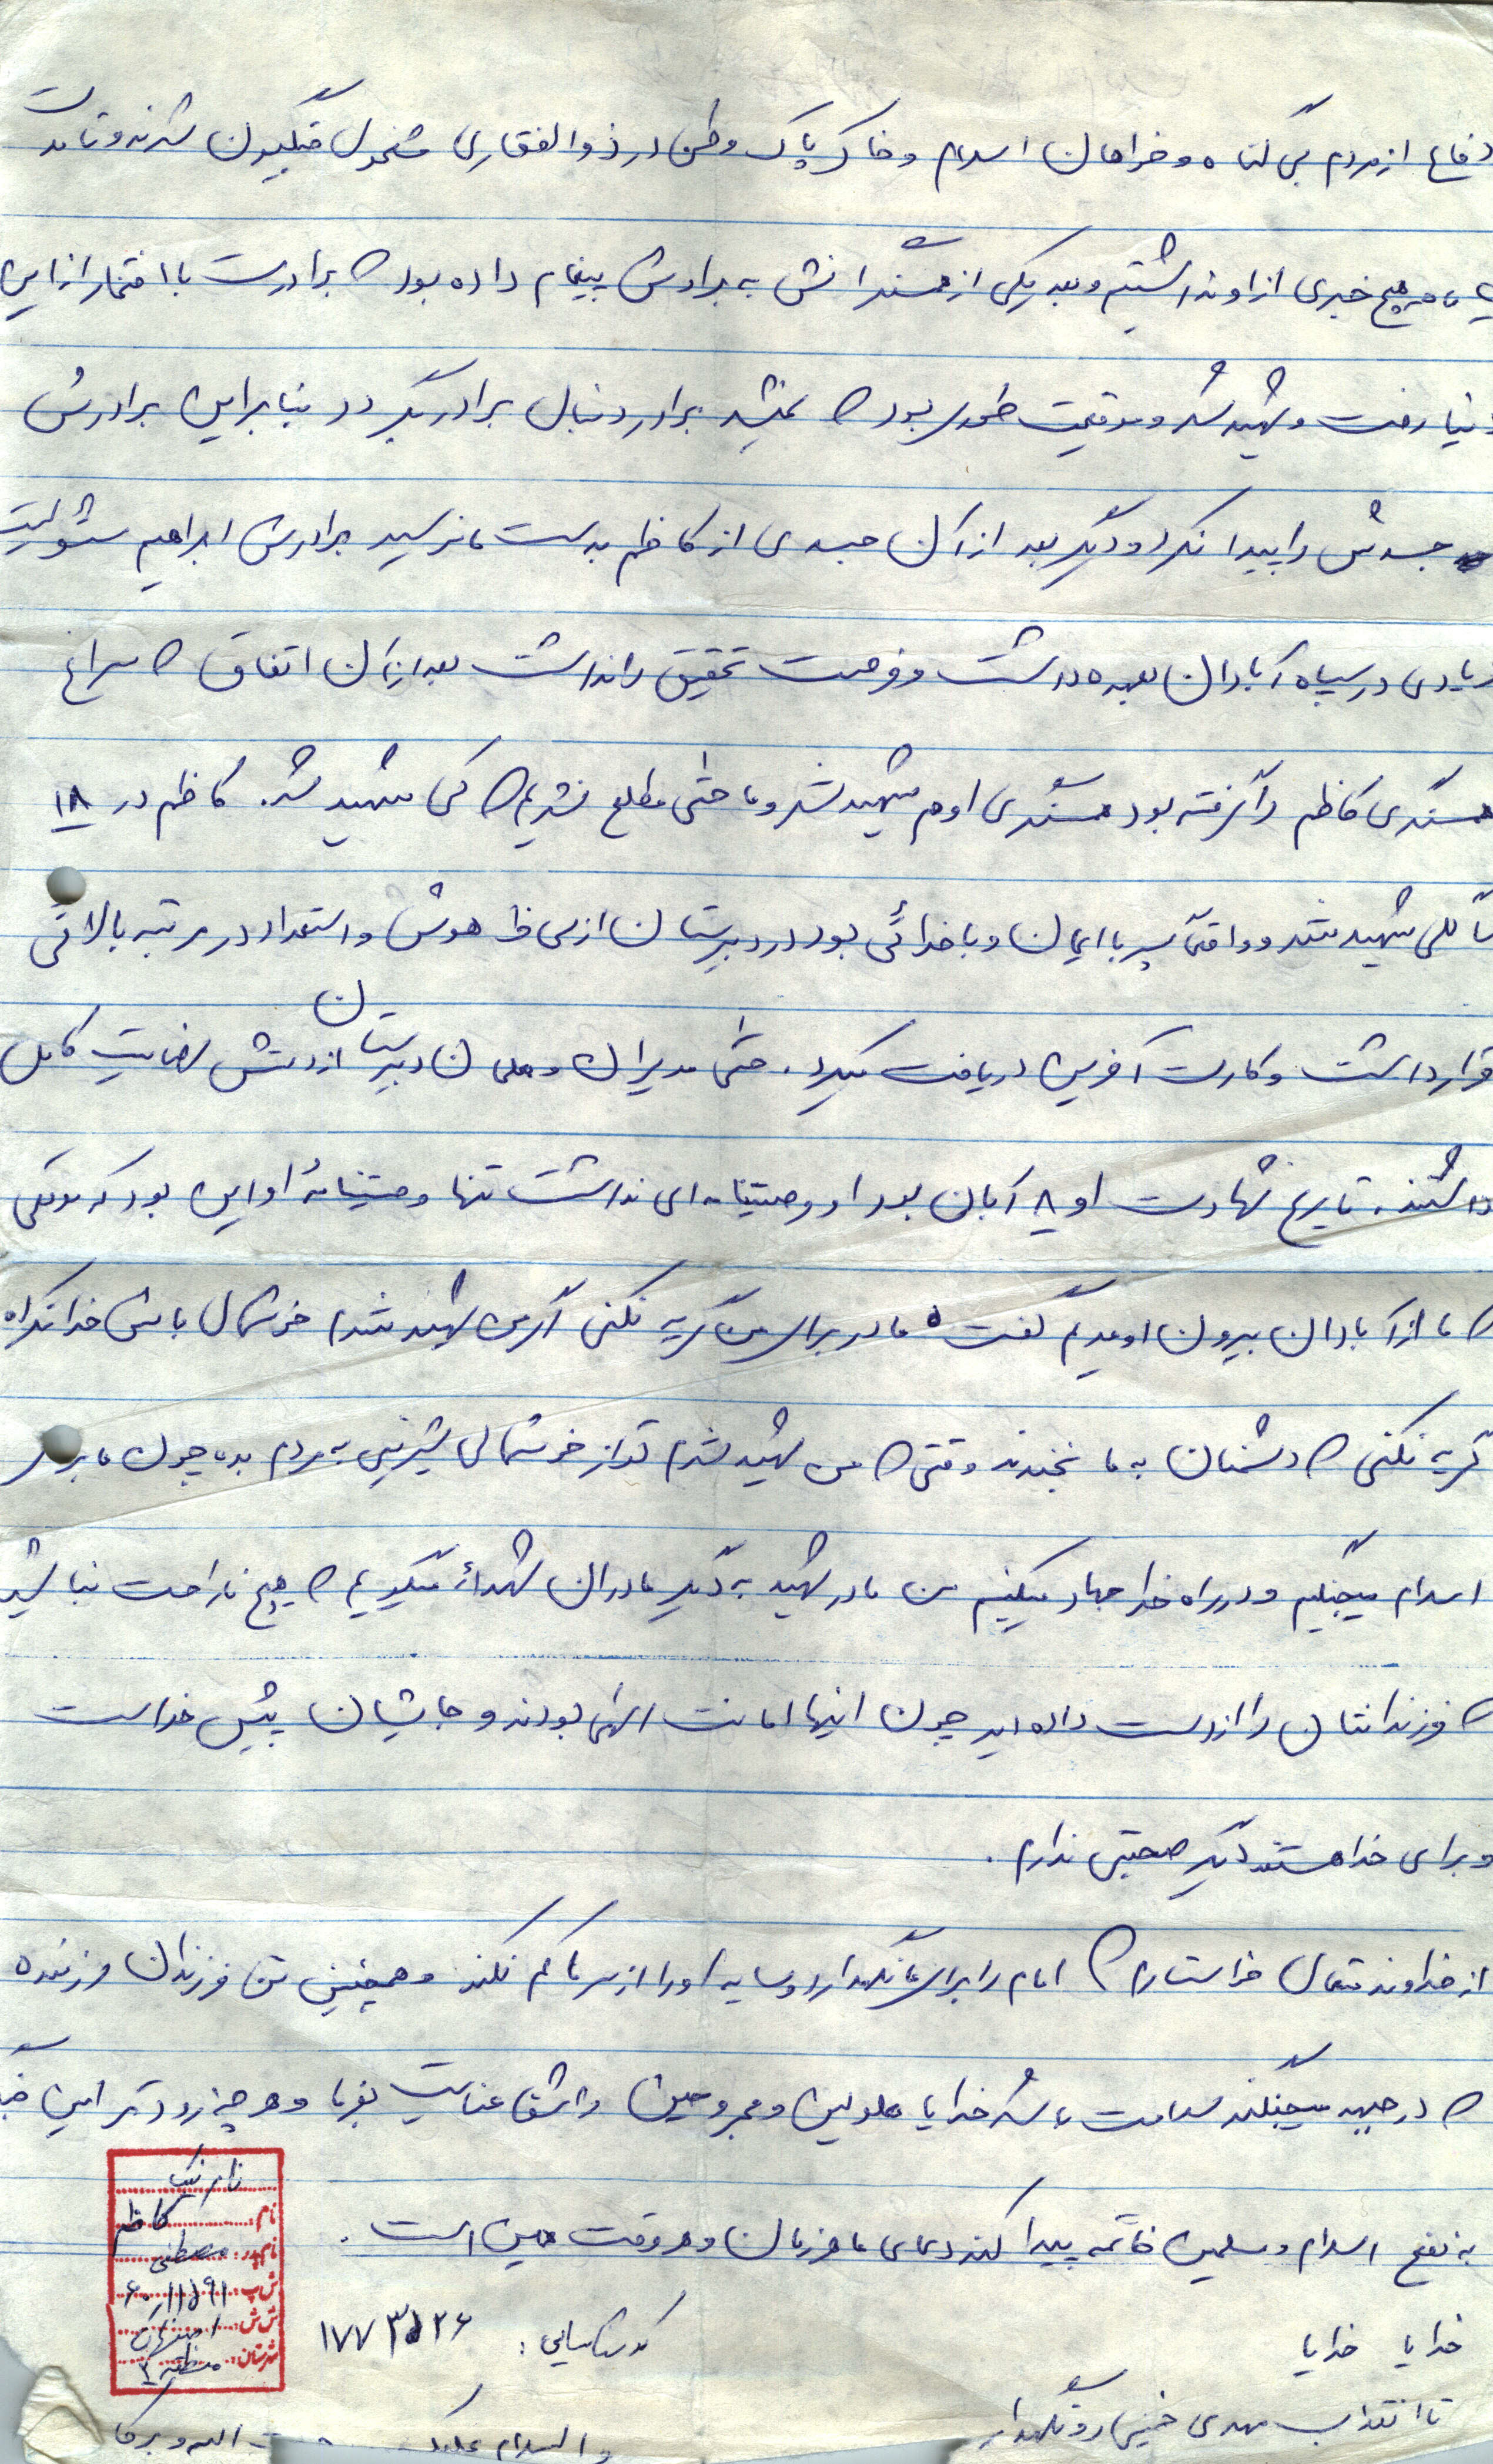 دفاع از مردم بی گناه و خواهان اسلام و خاک پاک وطن در ذوالفقاری مشغول جنگیدن شدند و تا مدت
ما هیچ خبری از او نداشتیم و بعد یکی از همسنگرانش به برادرش پیغام داده بود که برادرت با افتخار از این
دنیا رفت و شهید شد و موقعیت طوری بود که نمیشد برادر دنبال برادر بگردد بنابراین برادرش
جسدش را پیدا نکرد و دیگر بعد از آن جسدی از کاظم بدست ما نرسید برادرش ابراهیم مسئولیت
زیادی در سپاه آبادان بعهده داشت و فرصت تحقیق را نداشت بعد از آن اتفاق که سراغ
همسنگری کاظم را گرفته بود همسنگری او هم شهید شد و ما حتی مطلع نشدیم که کی شهید شد. کاظم در ۱۸
سالگی شهید شد و واقعاً پسر با ایمان و با خدائی بود در دبیرستان از لحاظ هوش و استعداد در مرتبه بالائی
قرار داشت و کارت آفرین دریافت میکرد. حتی مدیران و معلمان دبیرستان از دستش رضایت کامل
داشتند. تاریخ شهادت او ۸ آبان بود او وصیتنامه ای نداشت تنها وصیتنامهٔ او این بود که موقعی
که ما از آبادان بیرون اومدیم گفت مادر برای من گریه نکنی اگر من شهید شدم خوشحال باش خدا نکرده
گریه نکنی که دشمنان به ما بخندند وقتی که من شهید شدم تو از خوشحالی شیرینی به مردم بده چون ما برای
اسلام میجنگیم و در راه خدا جهاد میکنیم من مادر شهید به دیگر مادران شهداء میگویم که هیچ ناراحت نباشید
که فرزندانتان را از دست داده اید چون اینها امانت الهی بودند و جایشان پیش خداست
و برای خدا هستند دیگر صحبتی ندارم.
از خداوند متعال خواستارم که امام را برای ما نگهدارد و سایه او را از سر ما کم نکند و همچنین تن فرزندان رزمنده
که در جبهه میجنگند سلامت باشد خدایا معلولین و مجروحین را شفا عنایت بفرما و هر چه زودتر این جنگ
به نفع اسلام و مسلمین خاتمه پیدا کند دعای ما هر زمان و هر وقت همین است.
خدایا خدایا
تا انقلاب مهدی خمینی رو نگهدار
کد شناسایی: ۱۷۷۳۵۲۶
والسلام علیک
الله و برکا
نام: کاظم
نام پدر: مصطفی
ش پ: ۶۰۱۱۱۵۹۱
ش ش:
شهرستان: منطقه ۲